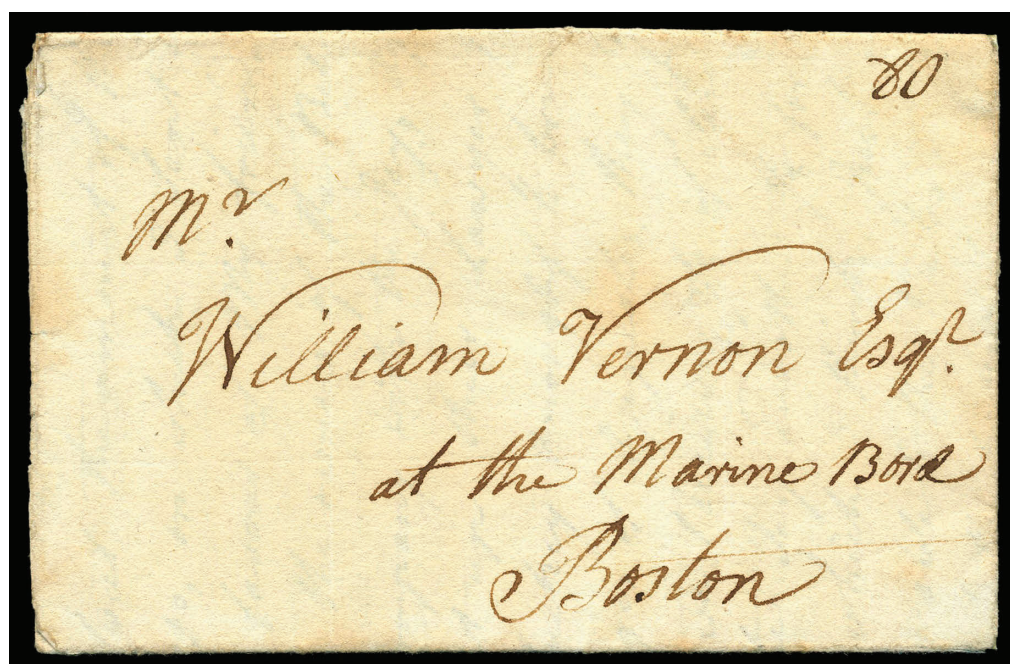 80
Mr.
William Vernon Esqr.
at the Marine Bord
Boston